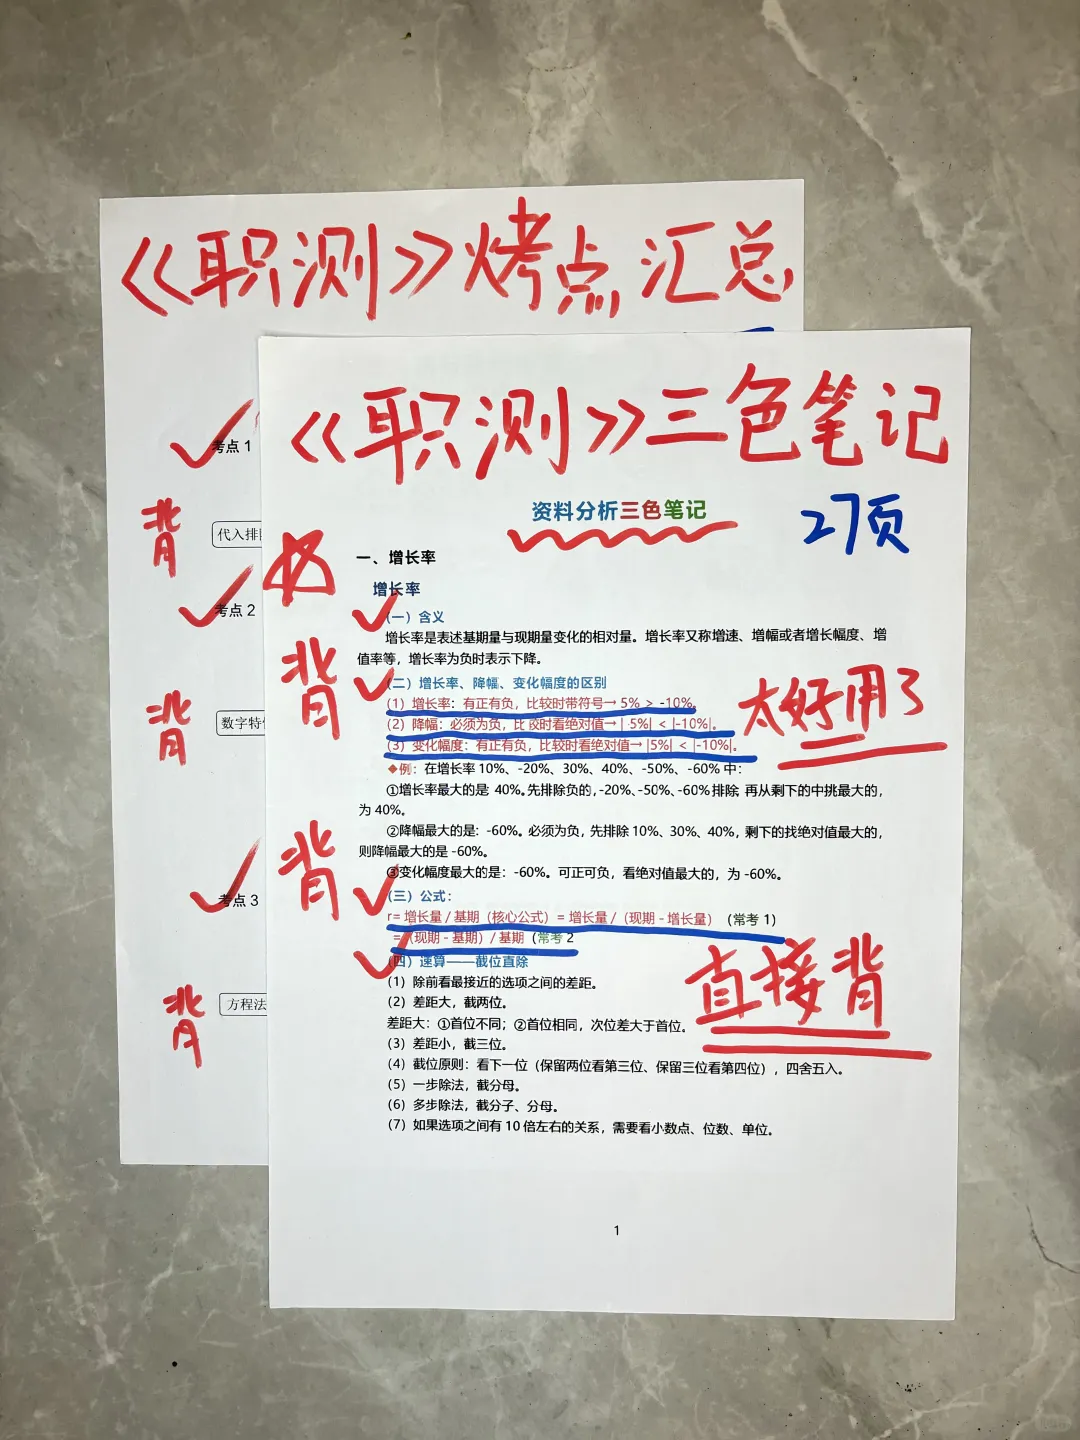 《职测》烤点汇总
考点1
背
代入排
考点2
背
数字特
考点3
背
方程法
《职测》三色笔记
27页
资料分析三色笔记
一、增长率
增长率
背
(一）含义
增长率是表述基期量与现期量变化的相对量。增长率又称增速、增幅或者增长幅度、增
值率等，增长率为负时表示下降。
(二）增长率、降幅、变化幅度的区别
（1）增长率：有正有负，比较时带符号→ 5% > -10%。
（2）降幅：必须为负，比较时看绝对值→| 5%| < |-10%|。
（3）变化幅度：有正有负，比较时看绝对值→ |5%| < |-10%|。
太好用了
❖例：在增长率 10%、-20%、30%、40%、-50%、-60% 中：
①增长率最大的是 40%。先排除负的，-20%、-50%、-60% 排除 再从剩下的中挑最大的，
为 40%。
②降幅最大的是：-60%。必须为负，先排除 10%、30%、40%，剩下的找绝对值最大的，
则降幅最大的是 -60%。
背
③变化幅度最大的是：-60%。可正可负，看绝对值最大的，为 -60%。
(三）公式：
r= 增长量 / 基期（核心公式）= 增长量 /（现期 - 增长量）（常考 1）
=（现期 - 基期）/ 基期（常考 2
(四）速算——截位直除
直接背
（1）除前看最接近的选项之间的差距。
（2）差距大，截两位。
差距大：①首位不同；②首位相同，次位差大于首位。
（3）差距小，截三位。
（4）截位原则：看下一位（保留两位看第三位、保留三位看第四位），四舍五入。
（5）一步除法，截分母。
（6）多步除法，截分子、分母。
（7）如果选项之间有 10 倍左右的关系，需要看小数点、位数、单位。
1